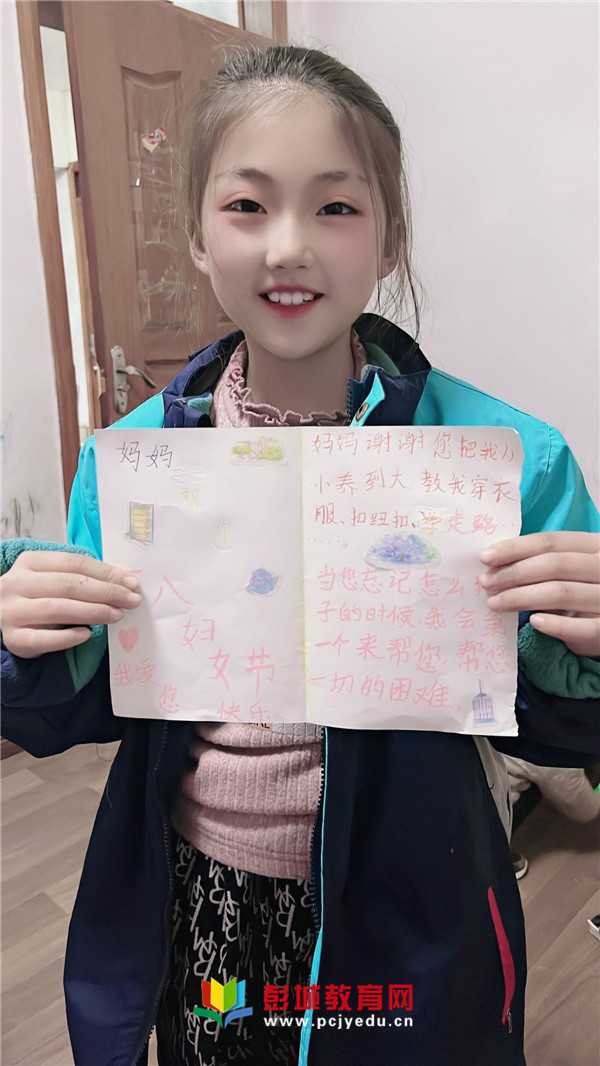 妈妈
祝
个
八
妇
女节
我爱
您
快乐
妈妈谢谢您把我从
小养到大,教我穿衣
服、扣纽扣、学走路……
当您忘记怎么
子的时候,我会第
一个来帮您,帮您
一切的困难。
彭城教育网
www.pcjyedu.cn